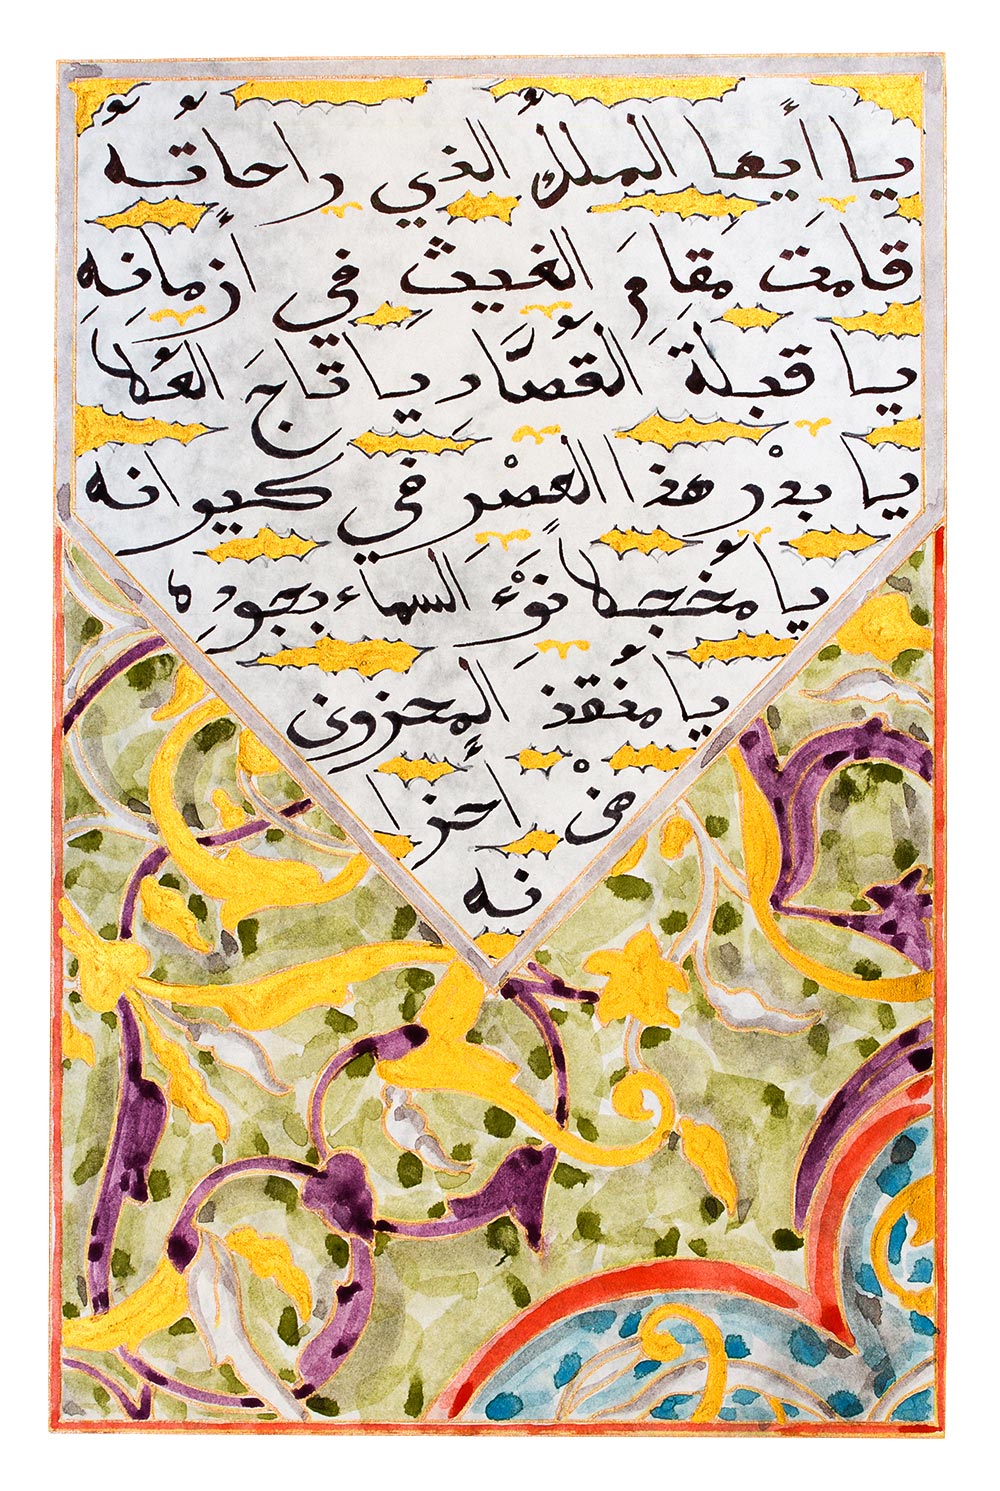 يا أيها الملكُ الذي راحاتُهُ
قامَت مَقامَ الغيثِ في أزمانهِ
يا قبلةَ القُصَّاد يا تاجَ العُلا
يا بدْر هذا العصْر في كيوانه
يا مُخجلاً نَوْءَ السماء بجودِه
يا مُنقذ المحزون
منْ أحزا
نه